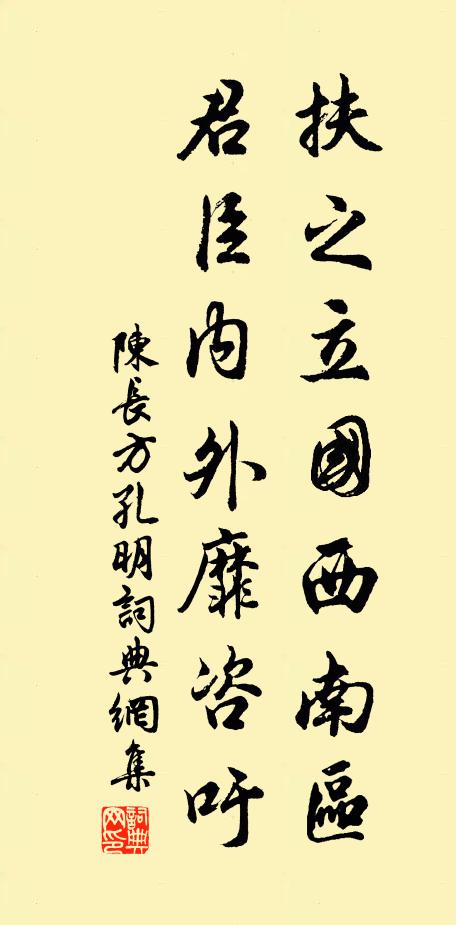 扶之立國西南區
君臣內外靡咨吁
陳長方孔明詞典網集
詞典網印